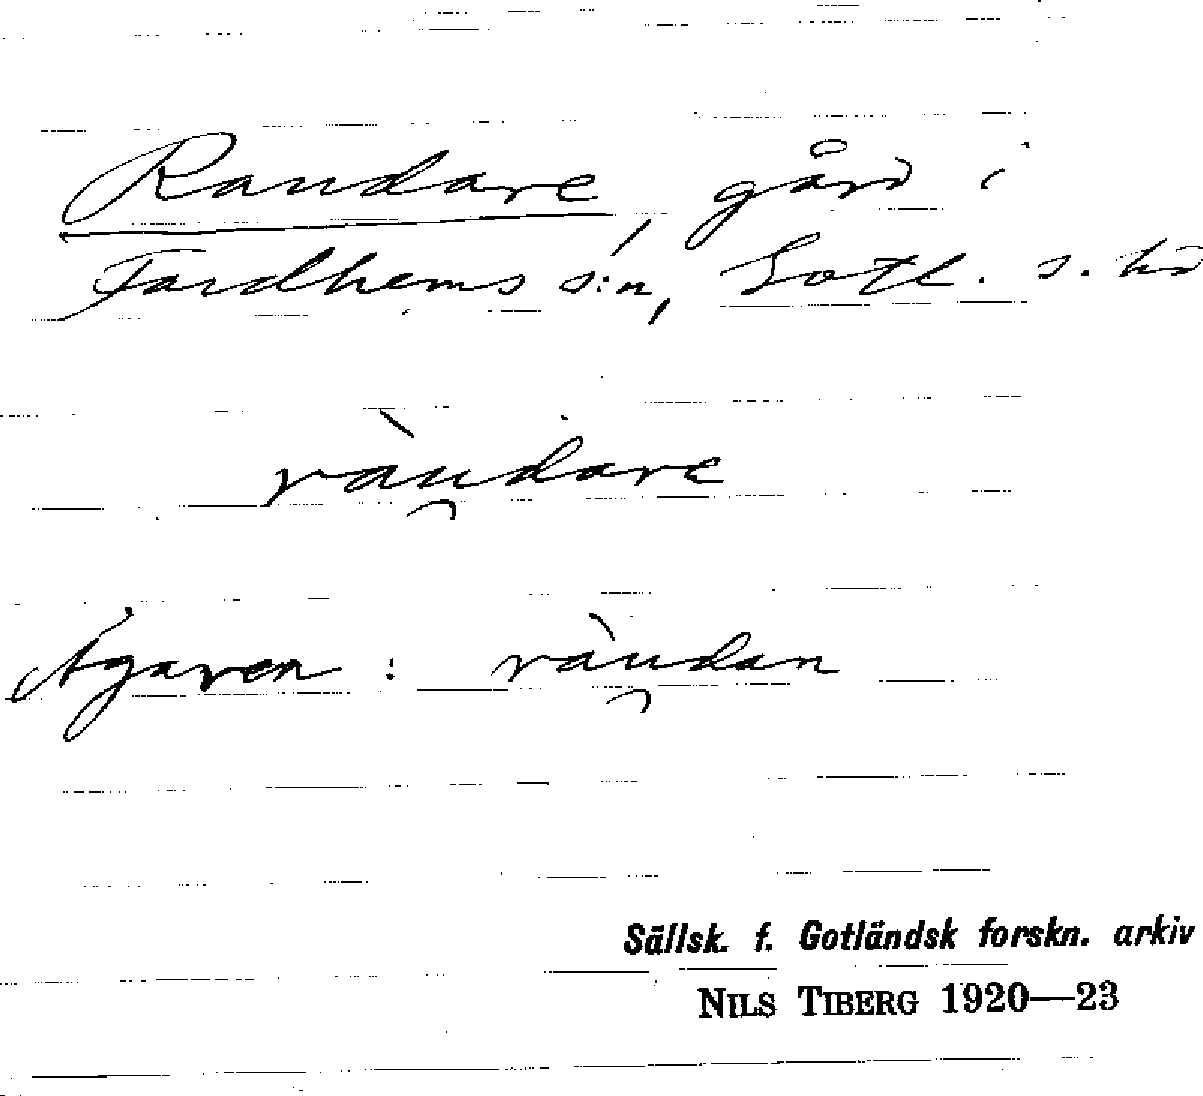 Raudare, gård i
Fardhems s:n, Gotl. s. hd
ràu̯dare
Ägaren: ràu̯dan
Sällsk. f. Gotländsk forskn. arkiv
NILS TIBERG 1920—23